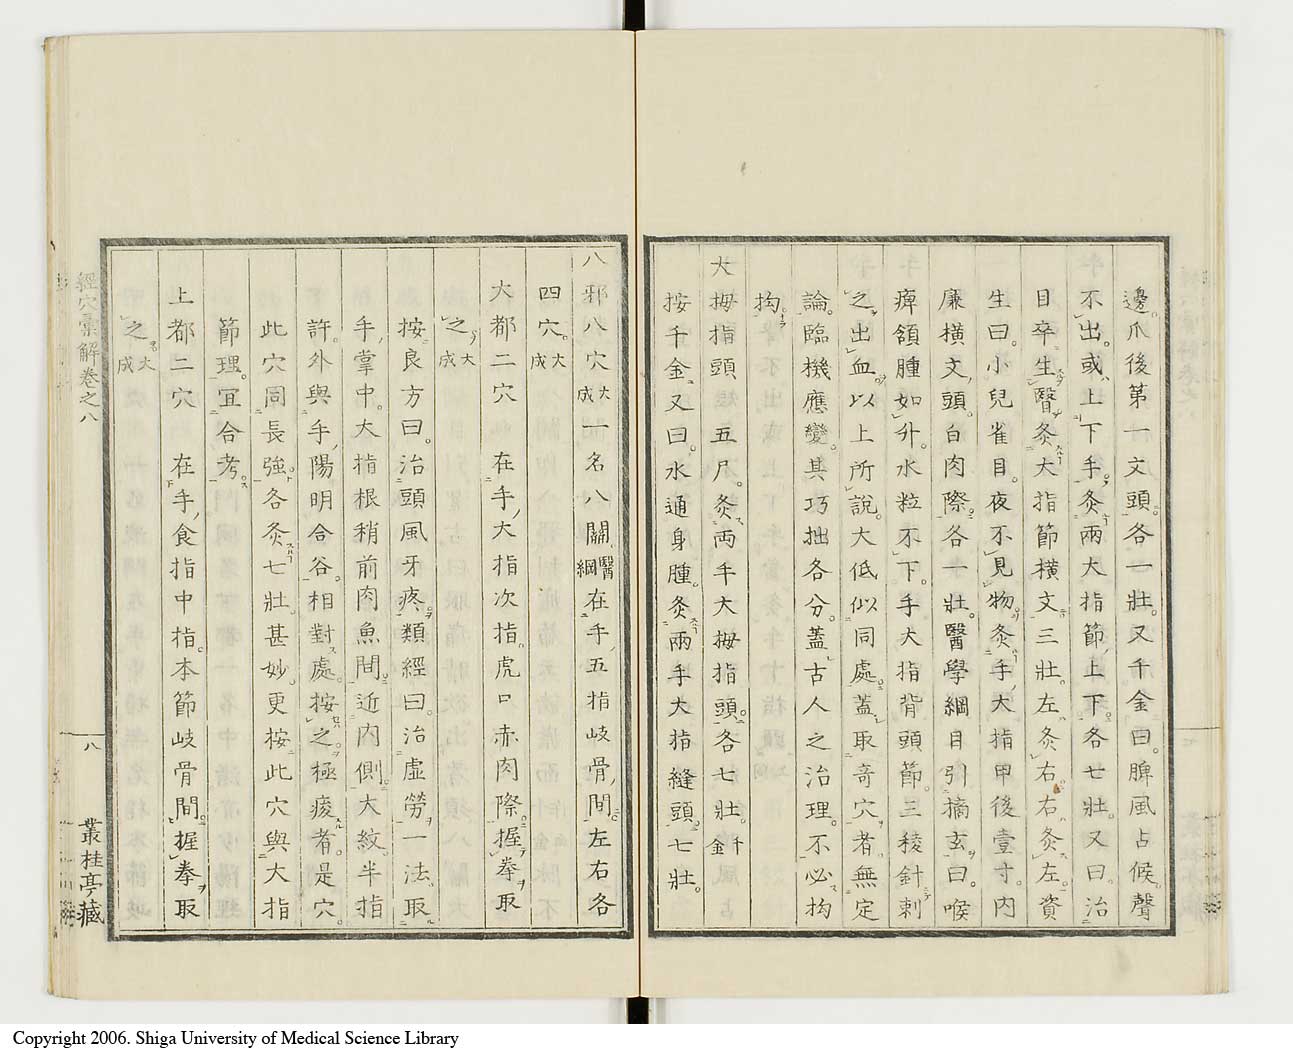 邊爪後第一文頭各一壯又千金曰脾風占候聲
不出或上下手灸兩大指節上下各七壯又曰治
目卒生瞖灸大指節横文三壯左灸右右灸左資
生曰小兒雀目夜不見物灸手大指甲後壹寸内
廉横文頭白肉際各一壯醫學綱目引摘玄曰喉
痺頷腫如升水粒不下手大指背頭節三稜針刺
之出血以上所說大低似同處蓋取竒穴者無定
論臨機應變其巧拙各分蓋古人之治理不必拘
拘
大拇指頭五尺灸両手大拇指頭各七壯千金
按千金又曰水通身腫灸兩手大指縫頭七壯
八邪八穴大成一名八關醫綱在手五指岐骨間左右各
四穴大成
大都二穴在手大指次指虎口赤肉際握拳取
之大成
按良方曰治頭風牙疼類經曰治虛勞一法取
手掌中大指根稍前肉魚間近内側大紋半指
許外與手陽明合谷相對處按之極痠者是穴
此穴同長強各灸七壯甚妙更桉此穴與大指
節理冝合考
上都二穴在手食指中指本節岐骨間握拳取
之大成
經穴彙解卷之八
八
叢桂亭藏
Copyright 2006. Shiga University of Medical Science Library